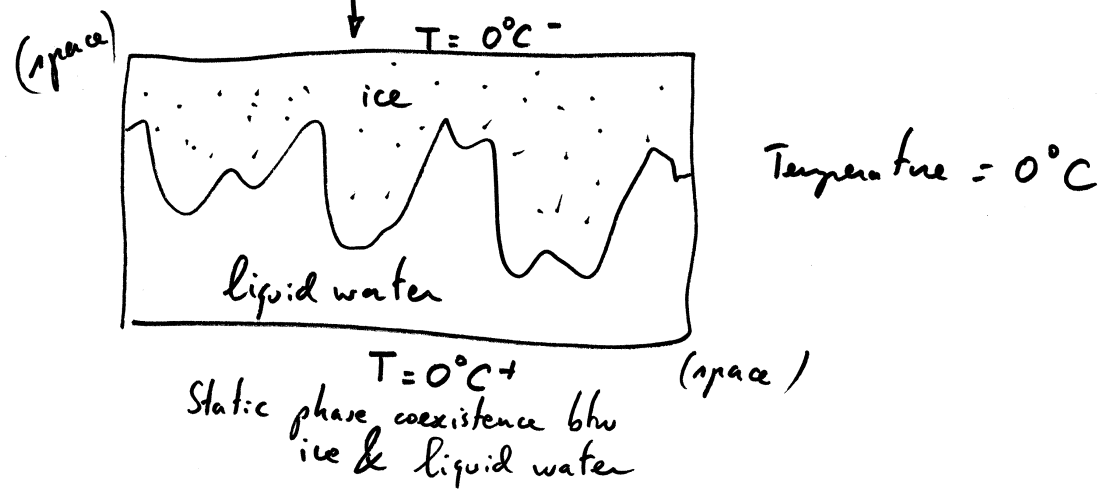 (space)
T = 0°C -
ice
Temperature = 0°C
liquid water
T = 0°C +
(space)
Static phase coexistence btw
ice & liquid water